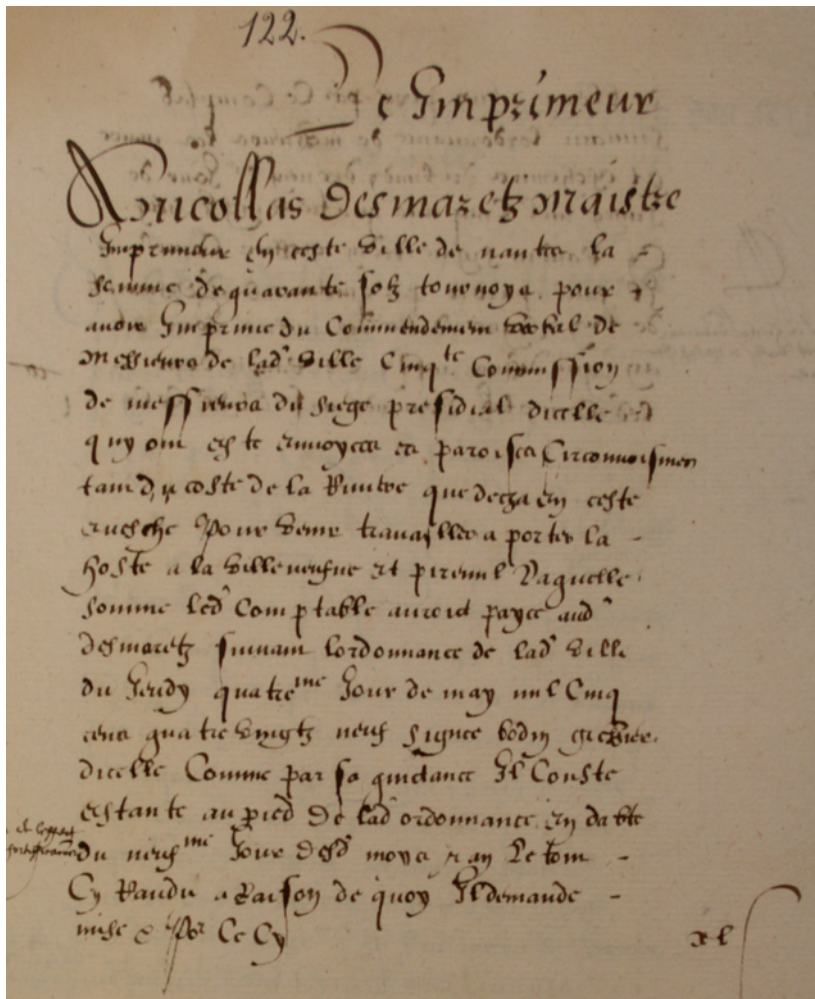 122.
De Imprimeur
A nicollas desmaretz maistre
Imprimeur en ceste ville de nantes la
somme de quarante solz tournoys pour
avoir Imprime du Commendement verbal de
messieurs de lad ville Cinq te Commission
de messieurs du siege presidial dicelle
quy ont este envoyees es paroisses Circonvoisines
tant du coste de la Riviere que deca en ceste
evesche Pour venir travailler a porter la
hoste a la villeneufve et piremil Laquelle
somme led Comptable auroit payee aud
desmaretz suivant lordonnance de lad ville
du Jeudy quatre me Jour de may mil Cinq
cens quatre vingtz neuf signee bodin greffier
dicelle Comme par sa quictance Il Conste
estante au pied de lad ordonnance en datte
du neuf me Jour desd moys et an Le tout
Cy Randu a Raison de quoy Il demande
mise & Por Ce Cy xl s